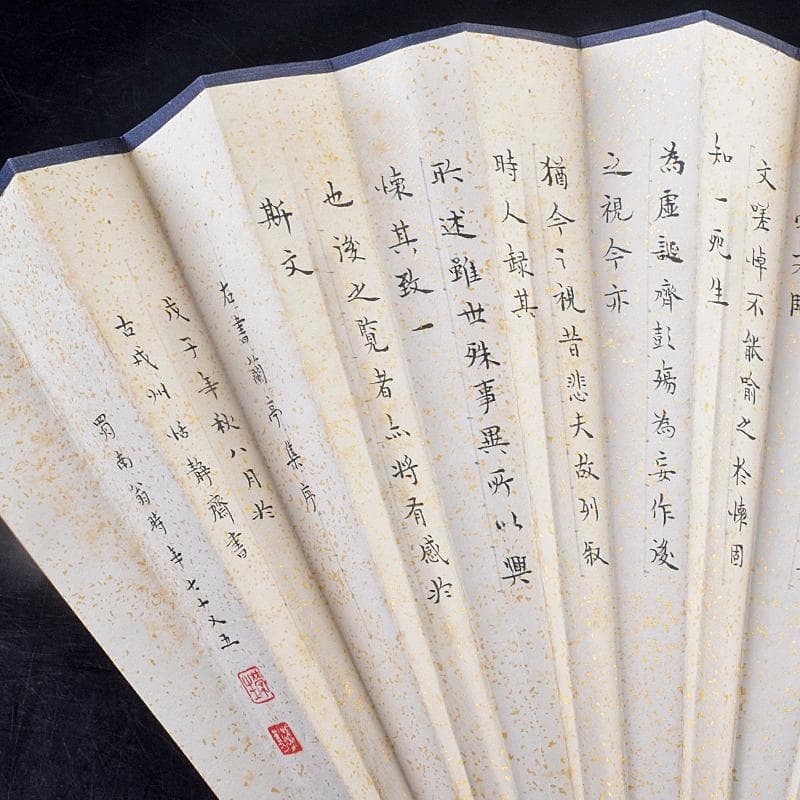 文嗟悼不能喻之於懷固
知一死生
為虛誕齊彭殤為妄作後
之視今亦
猶今之視昔悲夫故列敘
時人録其
所述雖世殊事異所以興
懷其致一
也後之覽者亦將有感於
斯文
右書蘭亭集序
戊子年秋八月於
古戎州恬靜齋書
蜀南翁時年七十又五